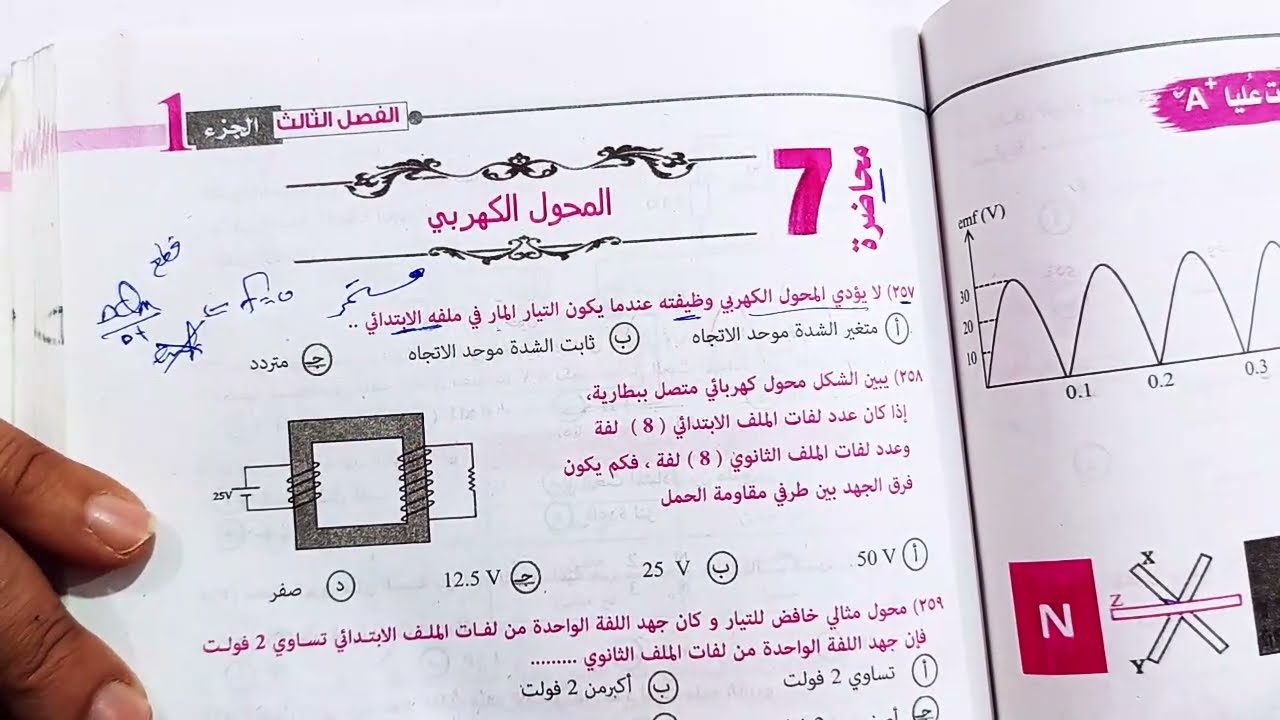 1 الجزء الفصل الثالث
محاضرة 7
المحول الكهربي
قطع
f=0
مستمر
٢٥٧) لا يؤدي المحول الكهربي وظيفته عندما يكون التيار المار في ملفه الابتدائي ..
أ متغير الشدة موحد الاتجاه ب ثابت الشدة موحد الاتجاه جـ متردد
٢٥٨) يبين الشكل محول كهربائي متصل ببطارية،
إذا كان عدد لفات الملف الابتدائي ( 8 ) لفة
وعدد لفات الملف الثانوي ( 8 ) لفة ، فكم يكون
فرق الجهد بين طرفي مقاومة الحمل
25V
أ 50 V ب 25 V جـ 12.5 V د صفر
٢٥٩) محول مثالي خافض للتيار و كان جهد اللفة الواحدة من لفات الملف الابتدائي تساوي 2 فولت
فإن جهد اللفة الواحدة من لفات الملف الثانوي .........
أ تساوي 2 فولت ب أكبرمن 2 فولت
جـ
A+
emf (V)
30
20
10
0.1 0.2 0.3
N
X
Z
Y